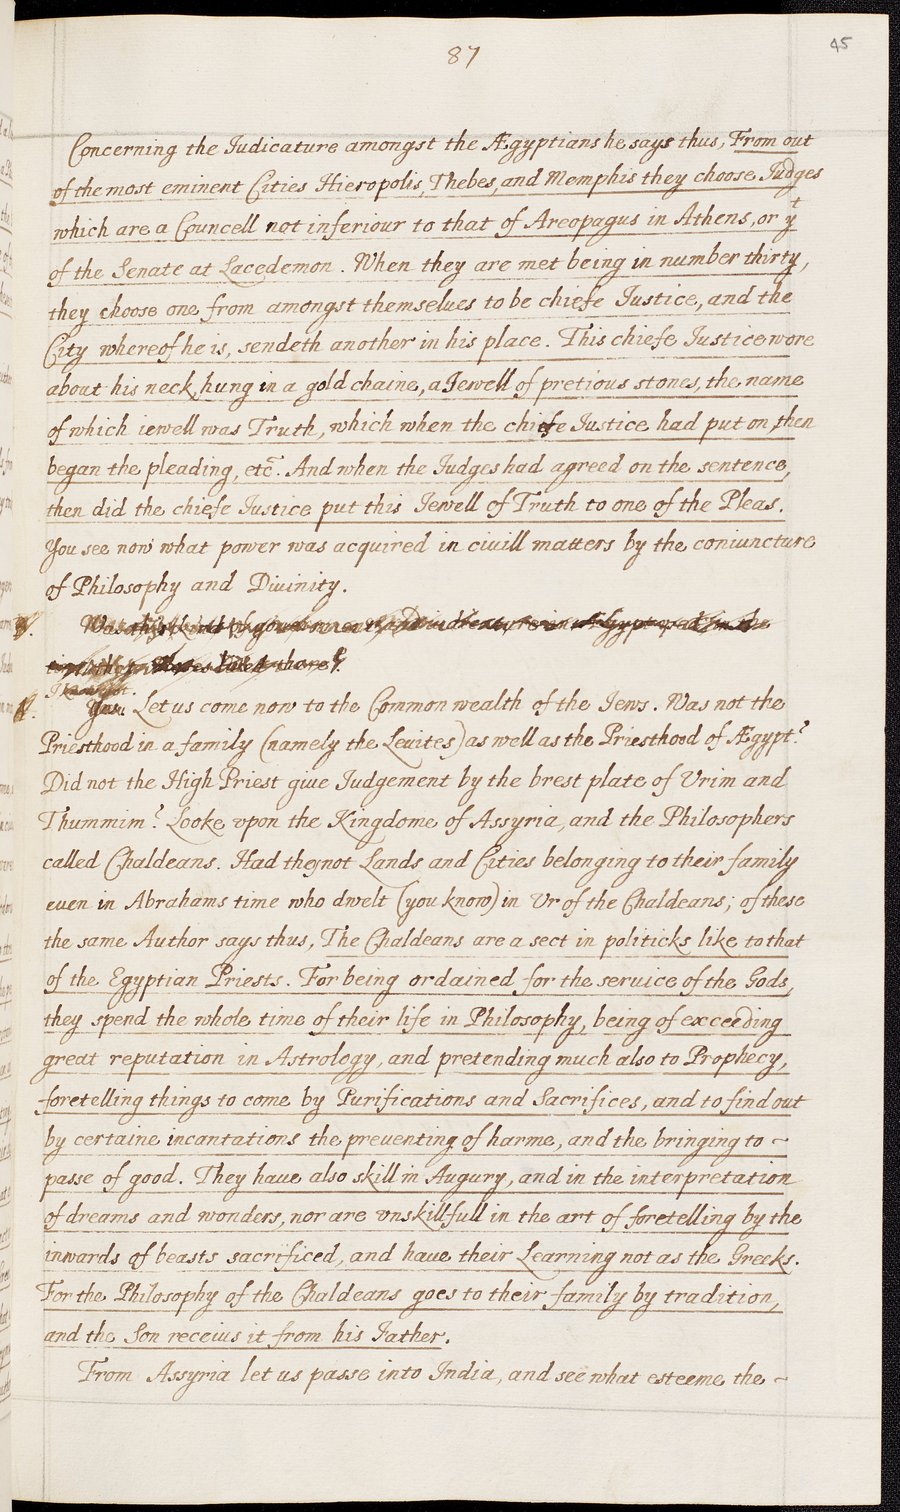 87
45
Concerning the Iudicature amongst the Ægyptians he says thus, From out
of the most eminent Cities Hieropolis, Thebes, and Memphis they choose Iudges
which are a Councell not inferiour to that of Areopagus in Athens, or yt
of the Senate at Lacedemon. When they are met being in number thirty,
they choose one from amongst themselues to be chiefe Iustice, and the
City whereof he is, sendeth another in his place. This chiefe Iustice wore
about his neck, hung in a gold chaine, a Iewell of pretious stones, the name
of which iewell was Truth, which when the chiefe Iustice had put on, then
began the pleading, etc. And when the Iudges had agreed on the sentence,
then did the chiefe Iustice put this Iewell of Truth to one of the Pleas.
You see now what power was acquired in ciuill matters by the coniuncture
of Philosophy and Diuinity.
Let us come now to the Common wealth of the Iews. Was not the
Priesthood in a family (namely the Leuites) as well as the Priesthood of Ægypt?
Did not the High Priest giue Iudgement by the brest plate of Vrim and
Thummim? Looke vpon the Kingdome of Assyria, and the Philosophers
called Chaldeans. Had they not Lands and Cities belonging to their family
euen in Abrahams time who dwelt (you know) in Vr of the Chaldeans; of these
the same Author says thus, The Chaldeans are a sect in politicks like to that
of the Egyptian Priests. For being ordained for the seruice of the Gods,
they spend the whole time of their life in Philosophy, being of exceeding
great reputation in Astrology, and pretending much also to Prophecy,
foretelling things to come by Purifications and Sacrifices, and to find out
by certaine incantations the preuenting of harme, and the bringing to ~
passe of good. They haue also skill in Augury, and in the interpretation
of dreams and wonders, nor are vnskillfull in the art of foretelling by the
inwards of beasts sacrificed, and haue their Learning not as the Greeks.
For the Philosophy of the Chaldeans goes to their family by tradition,
and the Son receius it from his Father.
From Assyria let us passe into India, and see what esteeme the ~